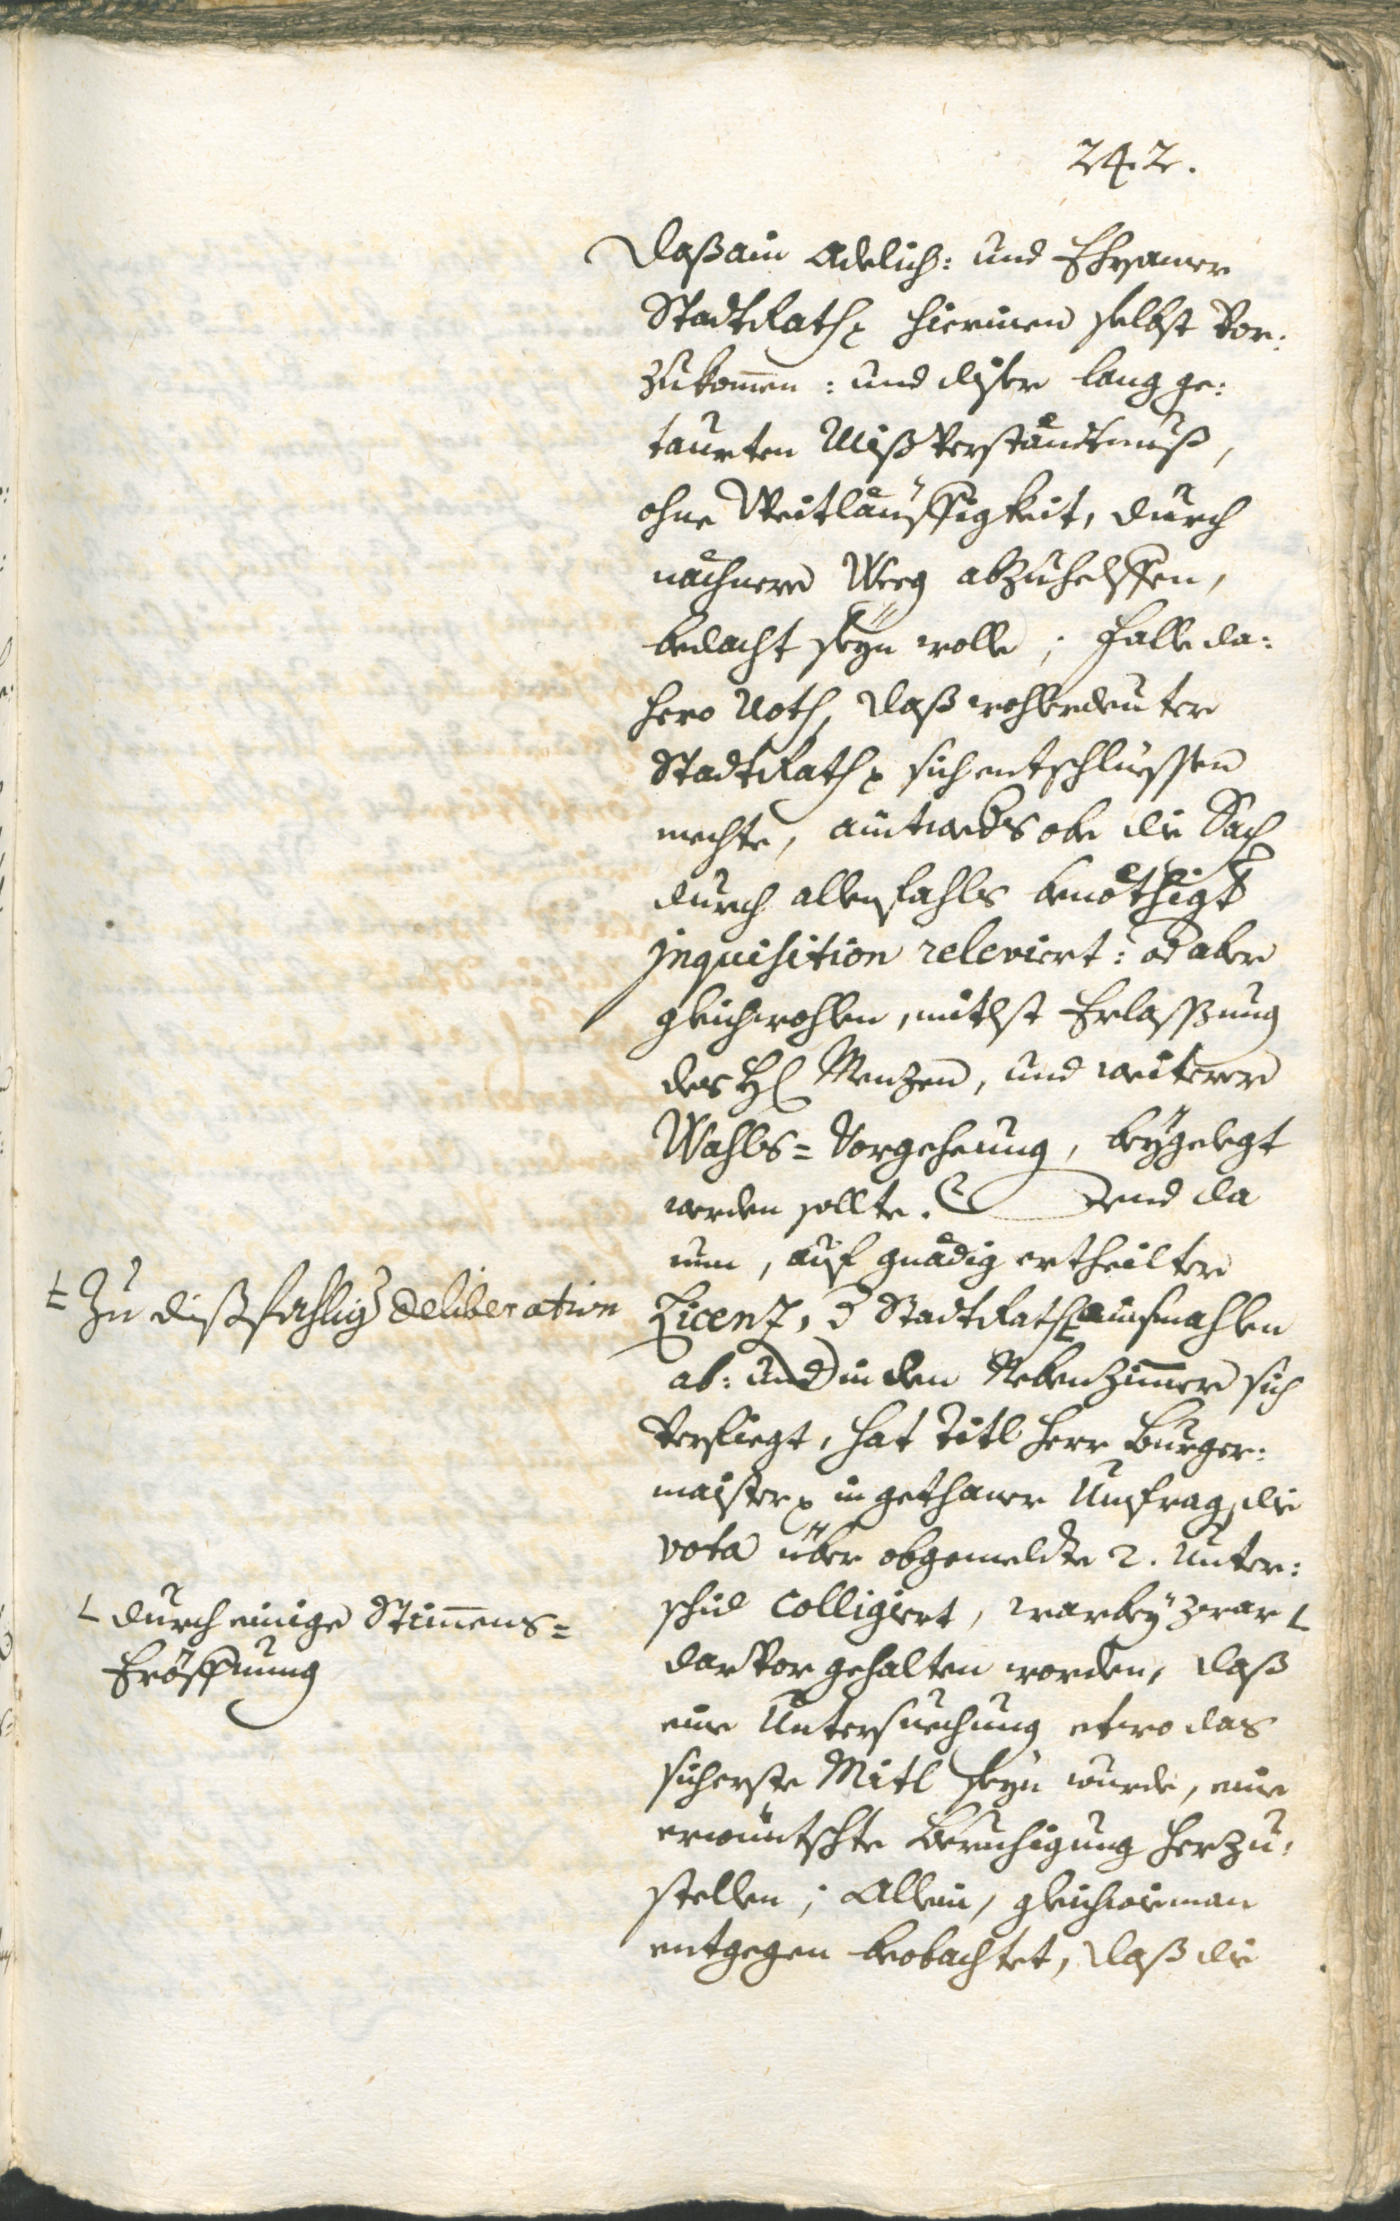 242.
daß ain Adelich: und Ehrsamer
StadtRath hierinen selbst vor:
zukom̄en: und diser lang ge:
taurten Mißverständtnuß,
ohne Weitläuffigkeit, durch
nächnere Weeg abzuhelffen,
bedacht seÿn wolle; Falle da:
hero Noth, daß wohlerdeuter
StadtRath sich entschlüessen
mechte, aintweders obe die Sach
durch allenfahls benöthigte
inquisition releviert: od aber
gleichwohlen, mitlst Erlassung
des H Menzen, und weiterer
Wahls=Vorgehung, beÿgelegt
werden sollte. Und da
nun, auf gnädig ertheilter
Licenz, d StadtRath ainsmahlen
ab: und in den Nebenzimmer sich
verfiegt, hat Titl Herr Burger:
maister in gethaner Umfrag, die
vota über obgemeldte 2. Unter:
schid colligiert, warbeÿ zwar
darvor gehalten worden, daß
eine Untersuechung etwo das
sicherste Mitl seÿn wurde, eine
erwüntschte Beruhigung herzu:
stellen; Allein, gleichwie man
entgegen beobachtet, daß die
Zu dißfahlig deliberation
durch einige Stim̄ens=
Eröffnung